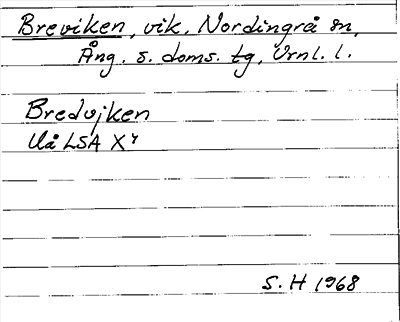 Breviken, vik, Nordingrå sn,
Ång. s. doms. tg, Vrnl. l.
Bredvjken
Uå LSA X4
S. H 1968